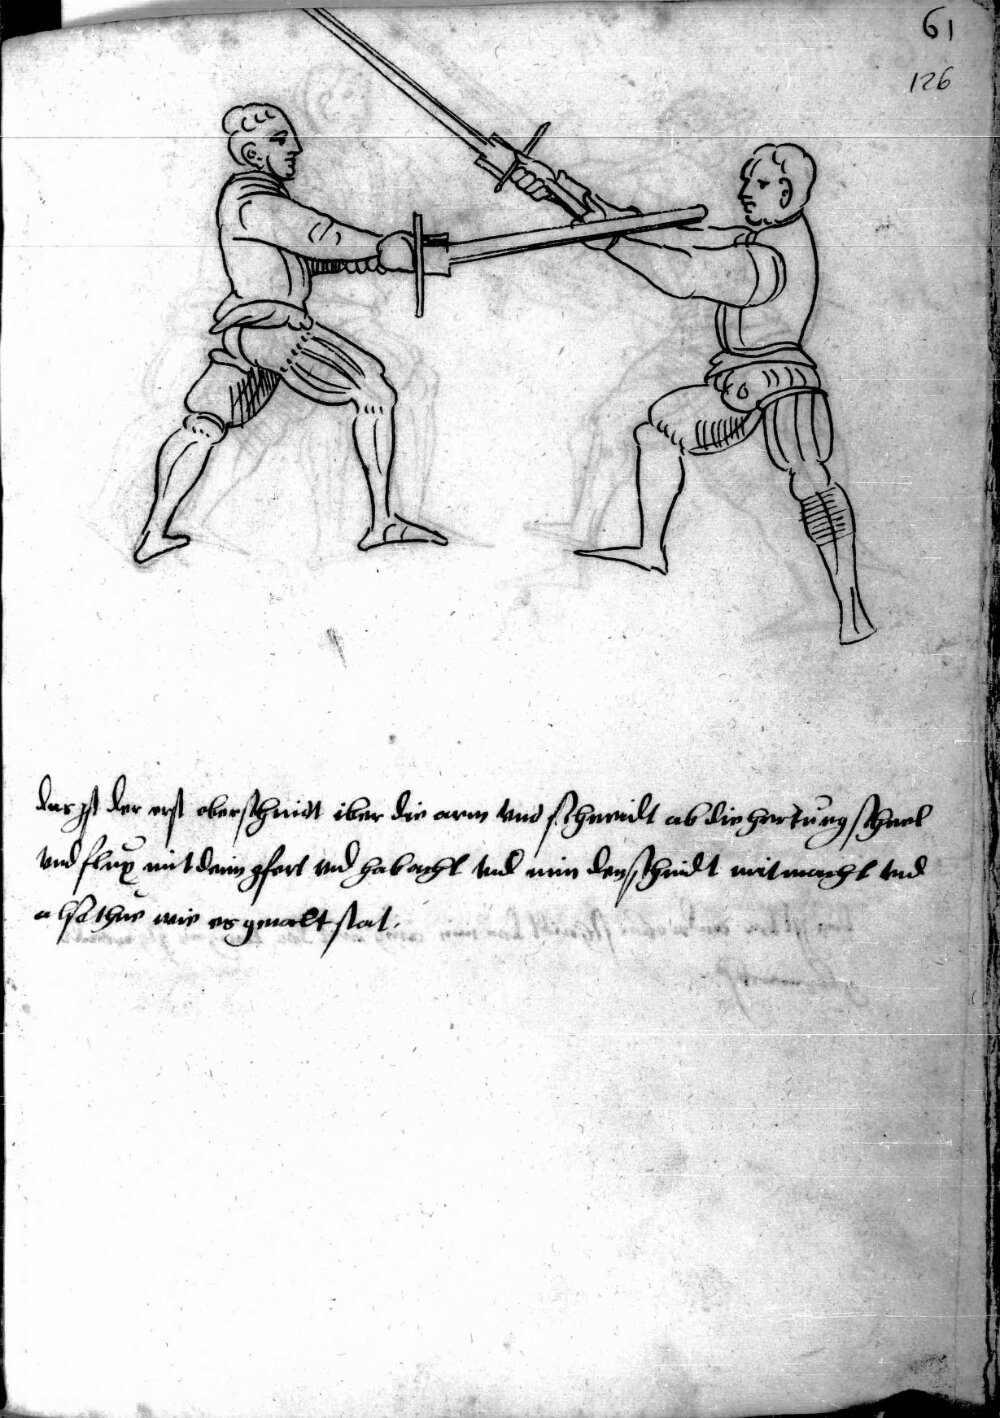 61
126
das ist der erst oberschnidt iber die arm vnd schneidt ab die hertung schnel
vnd flux mit deim pfert vnd hab acht vnd nim den schnidt mit macht vnd
also thue wie es gemalt stat.